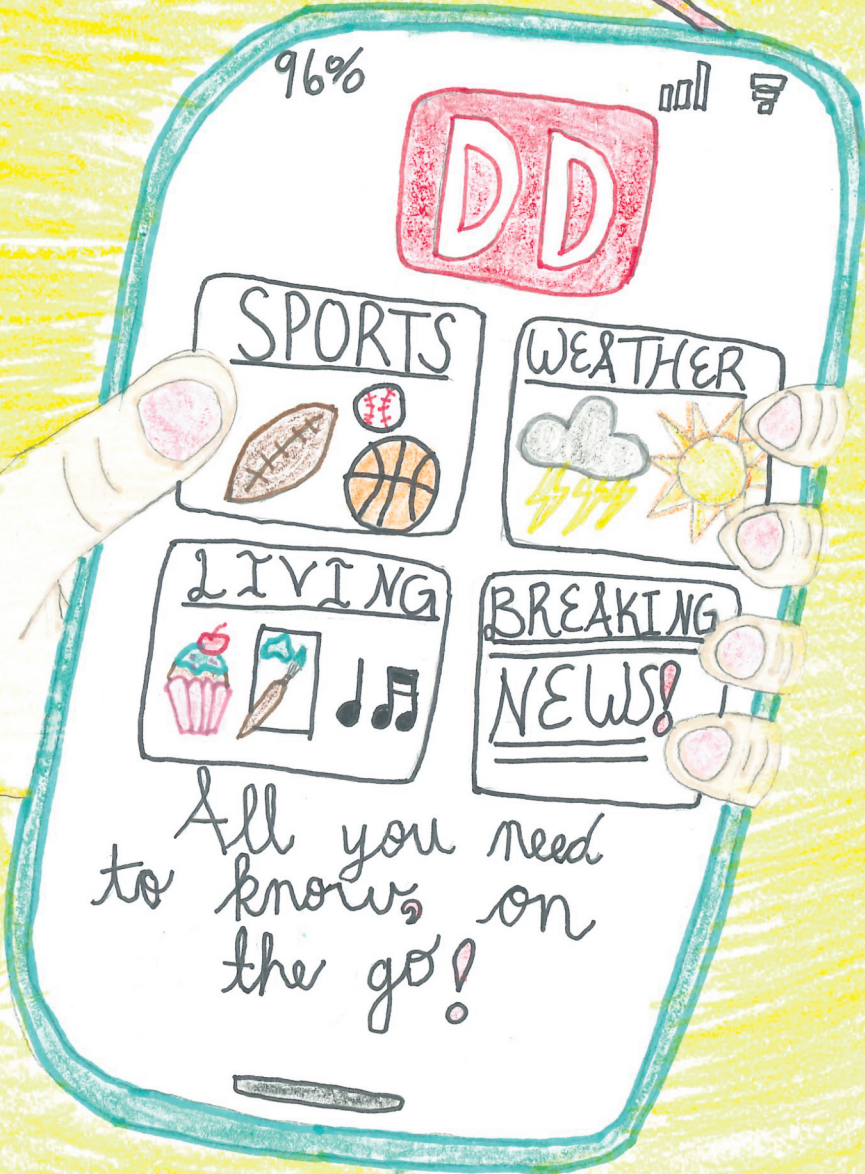 96%
DD
SPORTS
WEATHER
LIVING
BREAKING
NEWS!
All you need
to know, on
the go!